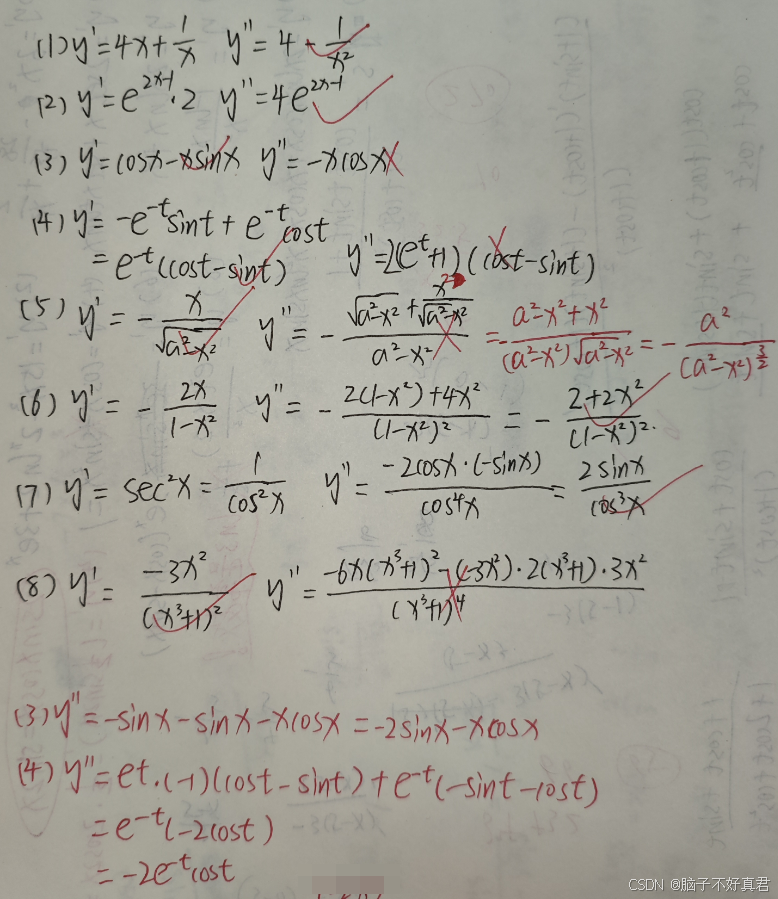 (1) y' = 4x + 1/x  y'' = 4 - 1/x²
(2) y' = e^(2x-1)·2  y'' = 4e^(2x-1)
(3) y' = cosx - xsinx  y'' = -xcosx
(4) y' = -e^(-t)sint + e^(-t)cost
= e^(-t)(cost - sint)  y'' = 2(e^t+1)(cost - sint)
(5) y' = - x/√(a²-x²)  y'' = - (√(a²-x²) + x²/√(a²-x²))/(a²-x²) = - (a²-x²+x²)/((a²-x²)√(a²-x²)) = - a²/(a²-x²)^(3/2)
(6) y' = - 2x/(1-x²)  y'' = - (2(1-x²)+4x²)/(1-x²)² = - (2+2x²)/(1-x²)².
(7) y' = sec²x = 1/cos²x  y'' = (-2cosx·(-sinx))/cos⁴x = 2sinx/cos³x
(8) y' = -3x²/(x³+1)²  y'' = (-6x(x³+1)² - (-3x²)·2(x³+1)·3x²)/(x³+1)⁴
(3) y'' = -sinx - sinx - xcosx = -2sinx - xcosx
(4) y'' = et·(-1)(cost - sint) + e^(-t)(-sint - cost)
= e^(-t)(-2cost)
= -2e^(-t)cost
CSDN @脑子不好真君